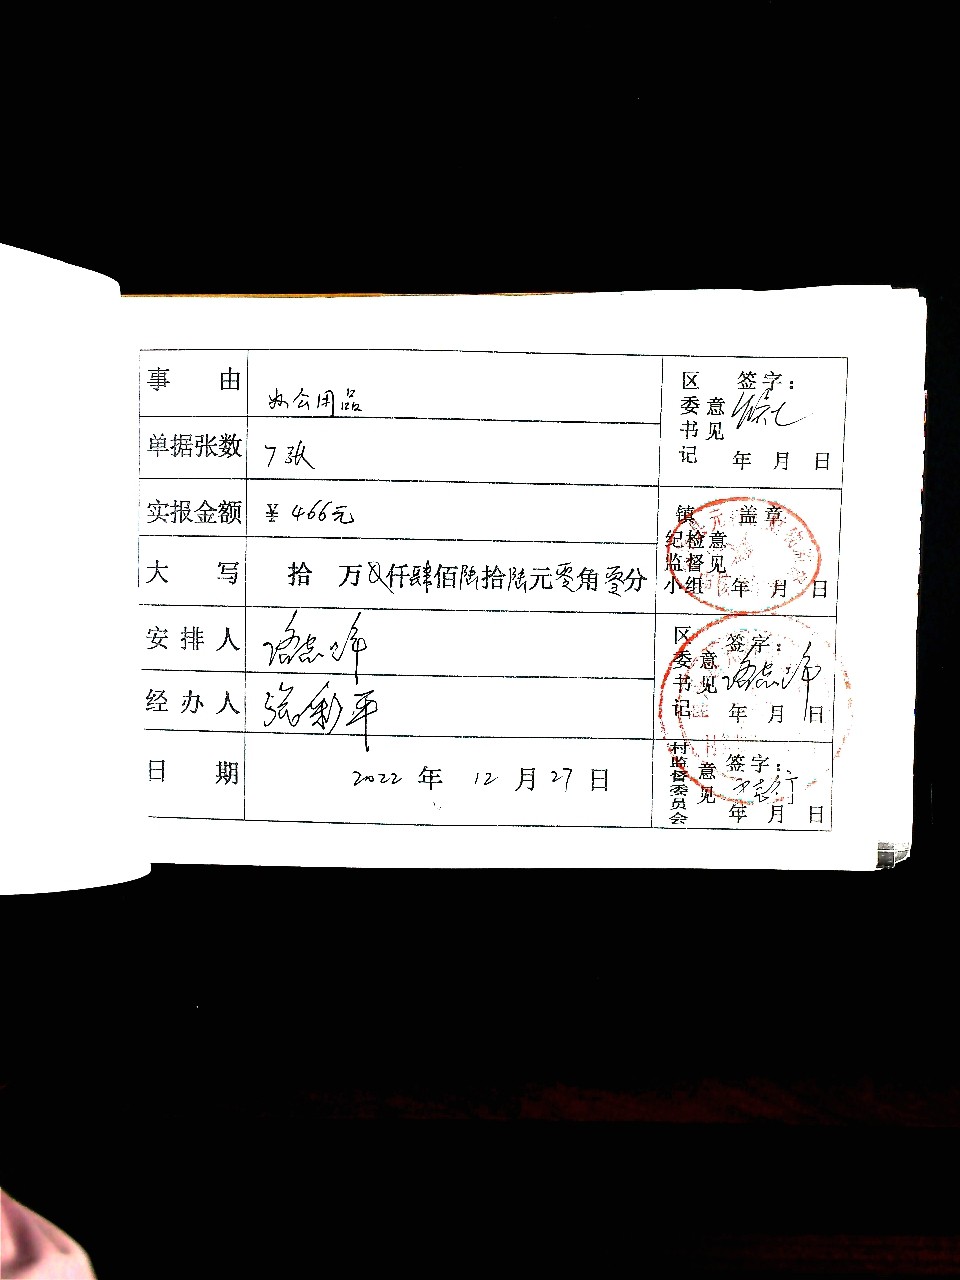 事由 办公用品
单据张数 7张
实报金额 ¥466元
大写 拾 万 仟肆佰陆拾陆元零角零分
安排人
经办人 张彩平
日期 2022年12月27日
区委书记意见 签字:
年 月 日
镇纪检监督小组意见 盖章
年 月 日
区委书记意见 签字:
年 月 日
村监督委员会意见 签字:
年 月 日